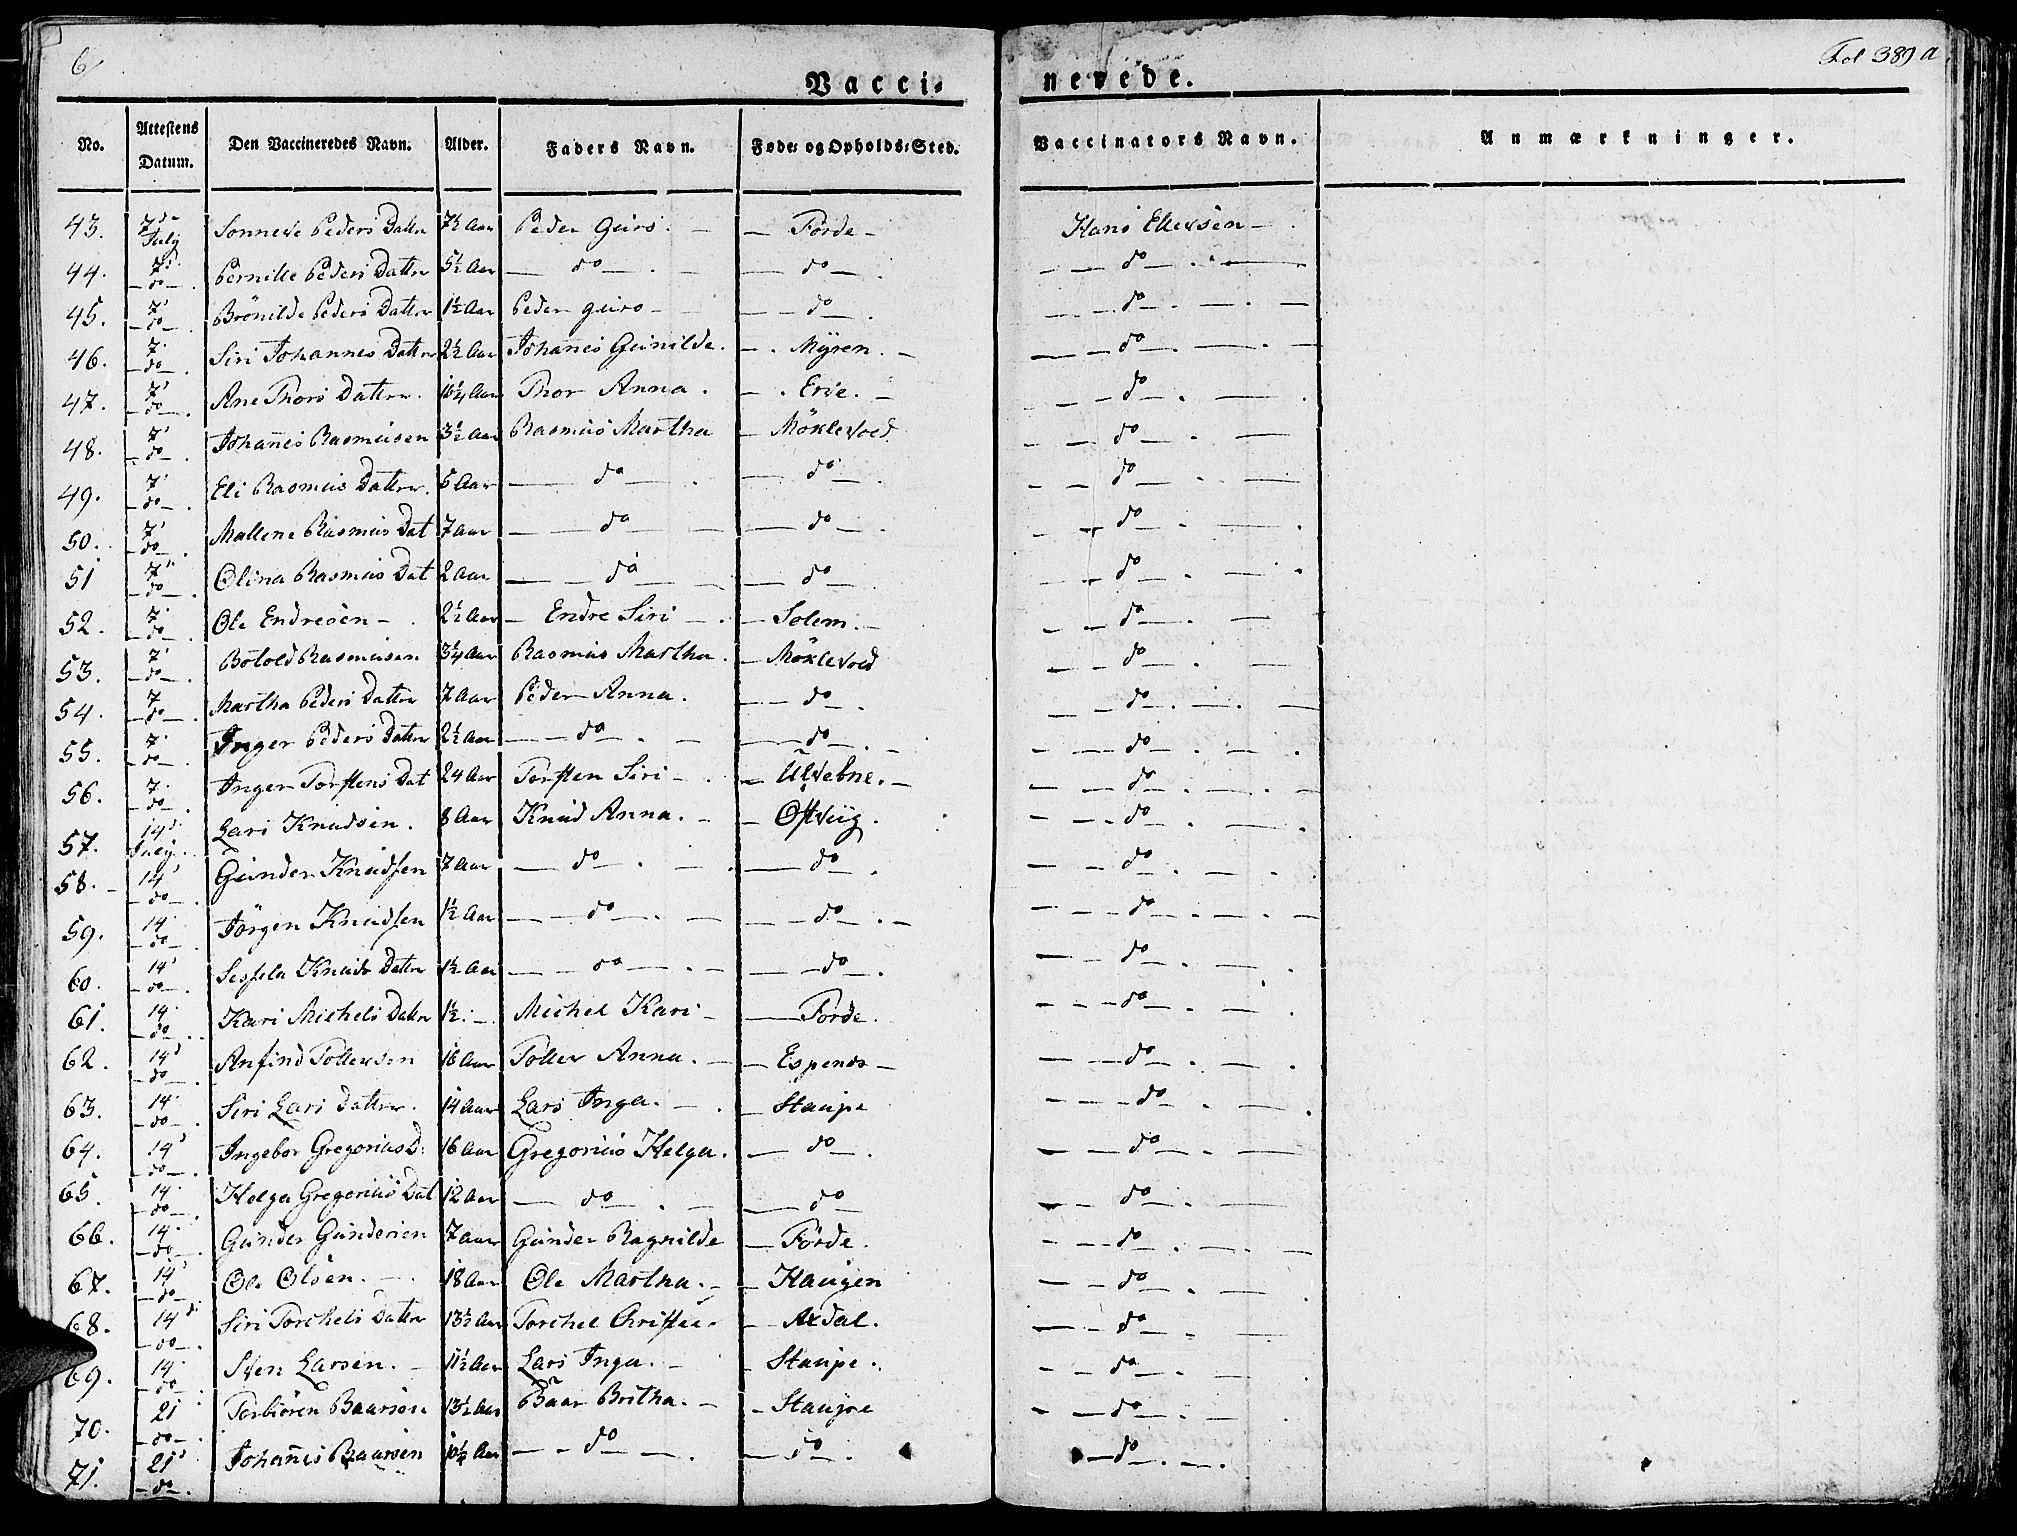 6
Vacci-
nerede.
Fol 389 a
No.
Attestens Datum.
Den Vaccineredes Navn.
Alder.
Faders Navn.
Føde- og Opholds-Sted.
Vaccinators Navn.
Anmærkninger.
43. 7de July Sønneve Peders Datter 7½ Aar Peder Guro. — Förde — Hans Ellersen —
44. 7d. do Pernille Peders Datter 5½ Aar — do — do — do
45. 7' do Brönilde Peders Datter 1½ Aar Peder Guro — do — do
46. 7. do Siri Johannes Datter 2½ Aar Johañes Gunilde. — Myren. — do
47. 7' do Ane Thors Datter. 10¼ Aar Thor Anna. — Erve. — do
48. 7' do Johañes Rasmusen 3½ Aar Rasmus Martha — Möklevold — do
49. 7' do Eli Rasmus Datter. 5 Aar — do — do — do
50. 7' do Mallene Rasmus Dat 7 Aar — do — do — do
51 7' do Olina Rasmus Dat 2 Aar — do — do — do
52. 7. do Ole Endresen — 2½ Aar — Endre Siri — Solem. — do
53. 7' do Botold Rasmusen 3¼ Aar Rasmus Martha. — Möklevold — do
54. 7 do Martha Peders Datter 7 Aar Peder Anna. — do — do
55. 7. do Inger Peders Datter 2½ Aar — do — do — do
56. 7. do Inger Torstens Dat 24 Aar Torsten Siri — Ulvebne. — do
57. 14d. July. Lars Knudsen. 8 Aar Knud Anna. — Østvig. — do
58. 14' do Gunder Knudsen 7 Aar — do — do — do
59. 14. do Jörgen Knudsen 1½ Aar — do — do — do
60. 14' do Sesfela Knuds Datter 1½ Aar — do — do — do
61. 14. do Kari Michels Datter 1½. — Michel Kari — Förde. — do
62. 14d do Anfind Tollevsen 16 Aar Tollev Anna. — Espenes — do
63. 14. do Siri Lars Datter. 14 Aar Lars Inga. — Staupe — do
64. 14' do Ingebor Gregorius D: 16 Aar Gregorius Helga. — do — do
65. 14. do Helga Gregorius Dat 12 Aar — do — do — do
66. 14. do Gunder Gundersen 7 Aar Gunder Ragnilde — Förde. — do
67. 14' do Ole Olsen. — 18 Aar Ole Martha. — Haugen — do
68. 14di do Siri Torchels Datter 13½ Aar Torchel Christie. — Axdal. — do
69. 14. do Sven Larsen. — 11½ Aar Lars Inga. — Staupe. — do
70. 21 do Torbiören Baarsen 13½ Aar Baar Britha. — Staupe — do
71. 21' do Johañes Baarsen 10¼ Aar — do — do — do